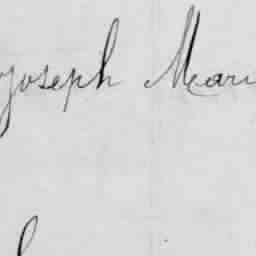 Joseph Mari